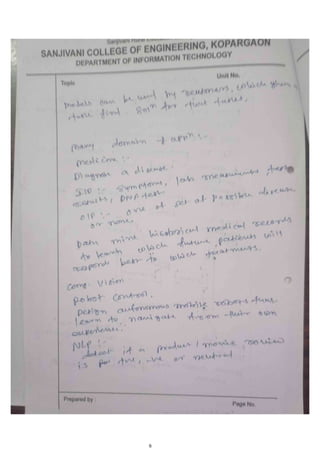 Sanjivani Rural Education
SANJIVANI COLLEGE OF ENGINEERING, KOPARGAON
DEPARTMENT OF INFORMATION TECHNOLOGY
Unit No.
Topic
models can be used by customers, which
tune first
many domain of appns :-
medicine :-
Diagnos a disease.
I/P :- symptoms, lab measurements, test
results, DNA test
O/P :- one of set of possible disease
or none.
Data mine historical medical records
to learn which future patients will
respond best to which treatments.
Comp. Vision
Robot Control.
Design autonomous mobile robots
learn to navigate from their own
experience.
NLP :-
detect if a product / movie review
is +ve, -ve or neutral
Prepared by :
Page No.
6